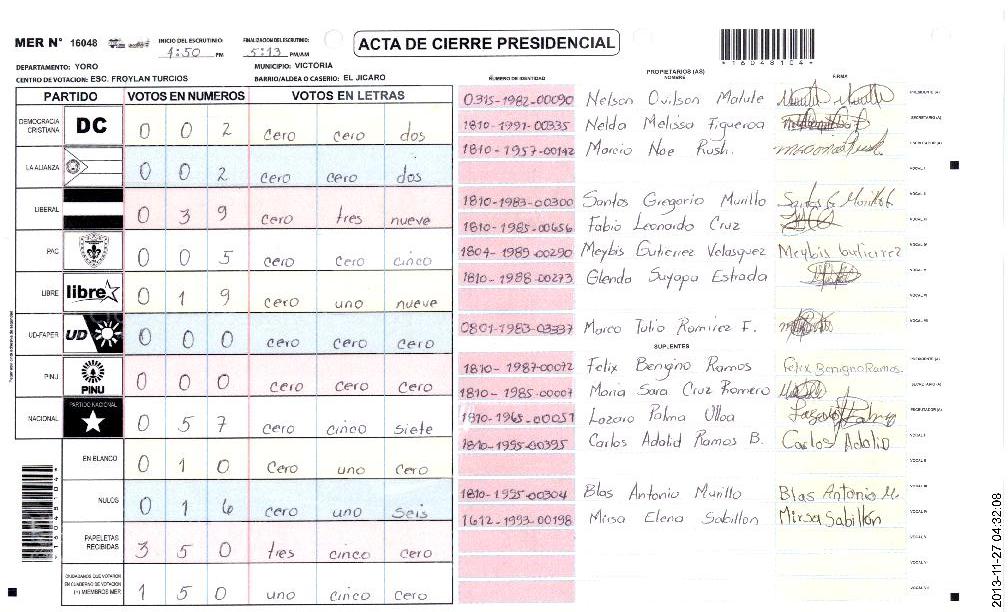 MER N° 16048
INICIO DEL ESCRUTINIO: 4:50 PM
FINALIZACION DEL ESCRUTINIO: 5:13 PM/AM
ACTA DE CIERRE PRESIDENCIAL
*16048104*
DEPARTAMENTO: YORO
MUNICIPIO: VICTORIA
CENTRO DE VOTACION: ESC. FROYLAN TURCIOS
BARRIO/ALDEA O CASERIO: EL JICARO
PARTIDO VOTOS EN NUMEROS VOTOS EN LETRAS
DEMOCRACIA CRISTIANA DC 0 0 2 cero cero dos
LA ALIANZA 0 0 2 cero cero dos
LIBERAL 0 3 9 cero tres nueve
PAC 0 0 5 cero cero cinco
LIBRE libre 0 1 9 cero uno nueve
UD-FAPER UD 0 0 0 cero cero cero
PINU PINU 0 0 0 cero cero cero
NACIONAL PARTIDO NACIONAL 0 5 7 cero cinco siete
EN BLANCO 0 1 0 cero uno cero
NULOS 0 1 6 cero uno seis
PAPELETAS RECIBIDAS 3 5 0 tres cinco cero
CIUDADANOS QUE VOTARON EN CUADERNO DE VOTACION (+) MIEMBROS MER 1 5 0 uno cinco cero
NUMERO DE IDENTIDAD PROPIETARIOS (AS) NOMBRE FIRMA
0315-1982-00090 Nelson Ovilson Matute PRESIDENTE (A)
1810-1991-00335 Nelda Melissa Figueroa SECRETARIO (A)
1810-1957-00142 Marcio Noe Rush. ESCRUTADOR (A)
VOCAL I
1810-1983-00300 Santos Gregorio Murillo VOCAL II
1810-1985-00656 Fabio Leonardo Cruz VOCAL III
1804-1989-00290 Meybis Gutierrez Velasquez Meybis Gutierrez VOCAL IV
1810-1988-00273 Glenda Suyapa Estrada VOCAL V
VOCAL VI
0801-1983-03337 Marco Tulio Ramirez F. VOCAL VII
SUPLENTES
1810-1987-00072 Felix Benigno Ramos Felix Benigno Ramos. PRESIDENTE (A)
1810-1985-00007 Maria Sara Cruz Romero SECRETARIO (A)
1810-1965-00057 Lazaro Palma Ulloa ESCRUTADOR (A)
1810-1995-00395 Carlos Adalid Ramos B. Carlos Adalid VOCAL I
VOCAL II
1810-1995-00304 Blas Antonio Murillo Blas Antonio M. VOCAL III
1612-1993-00198 Mirsa Elena Sabillon Mirsa Sabillón VOCAL IV
VOCAL V
VOCAL VI
VOCAL VII
2013-11-27 04:32:08